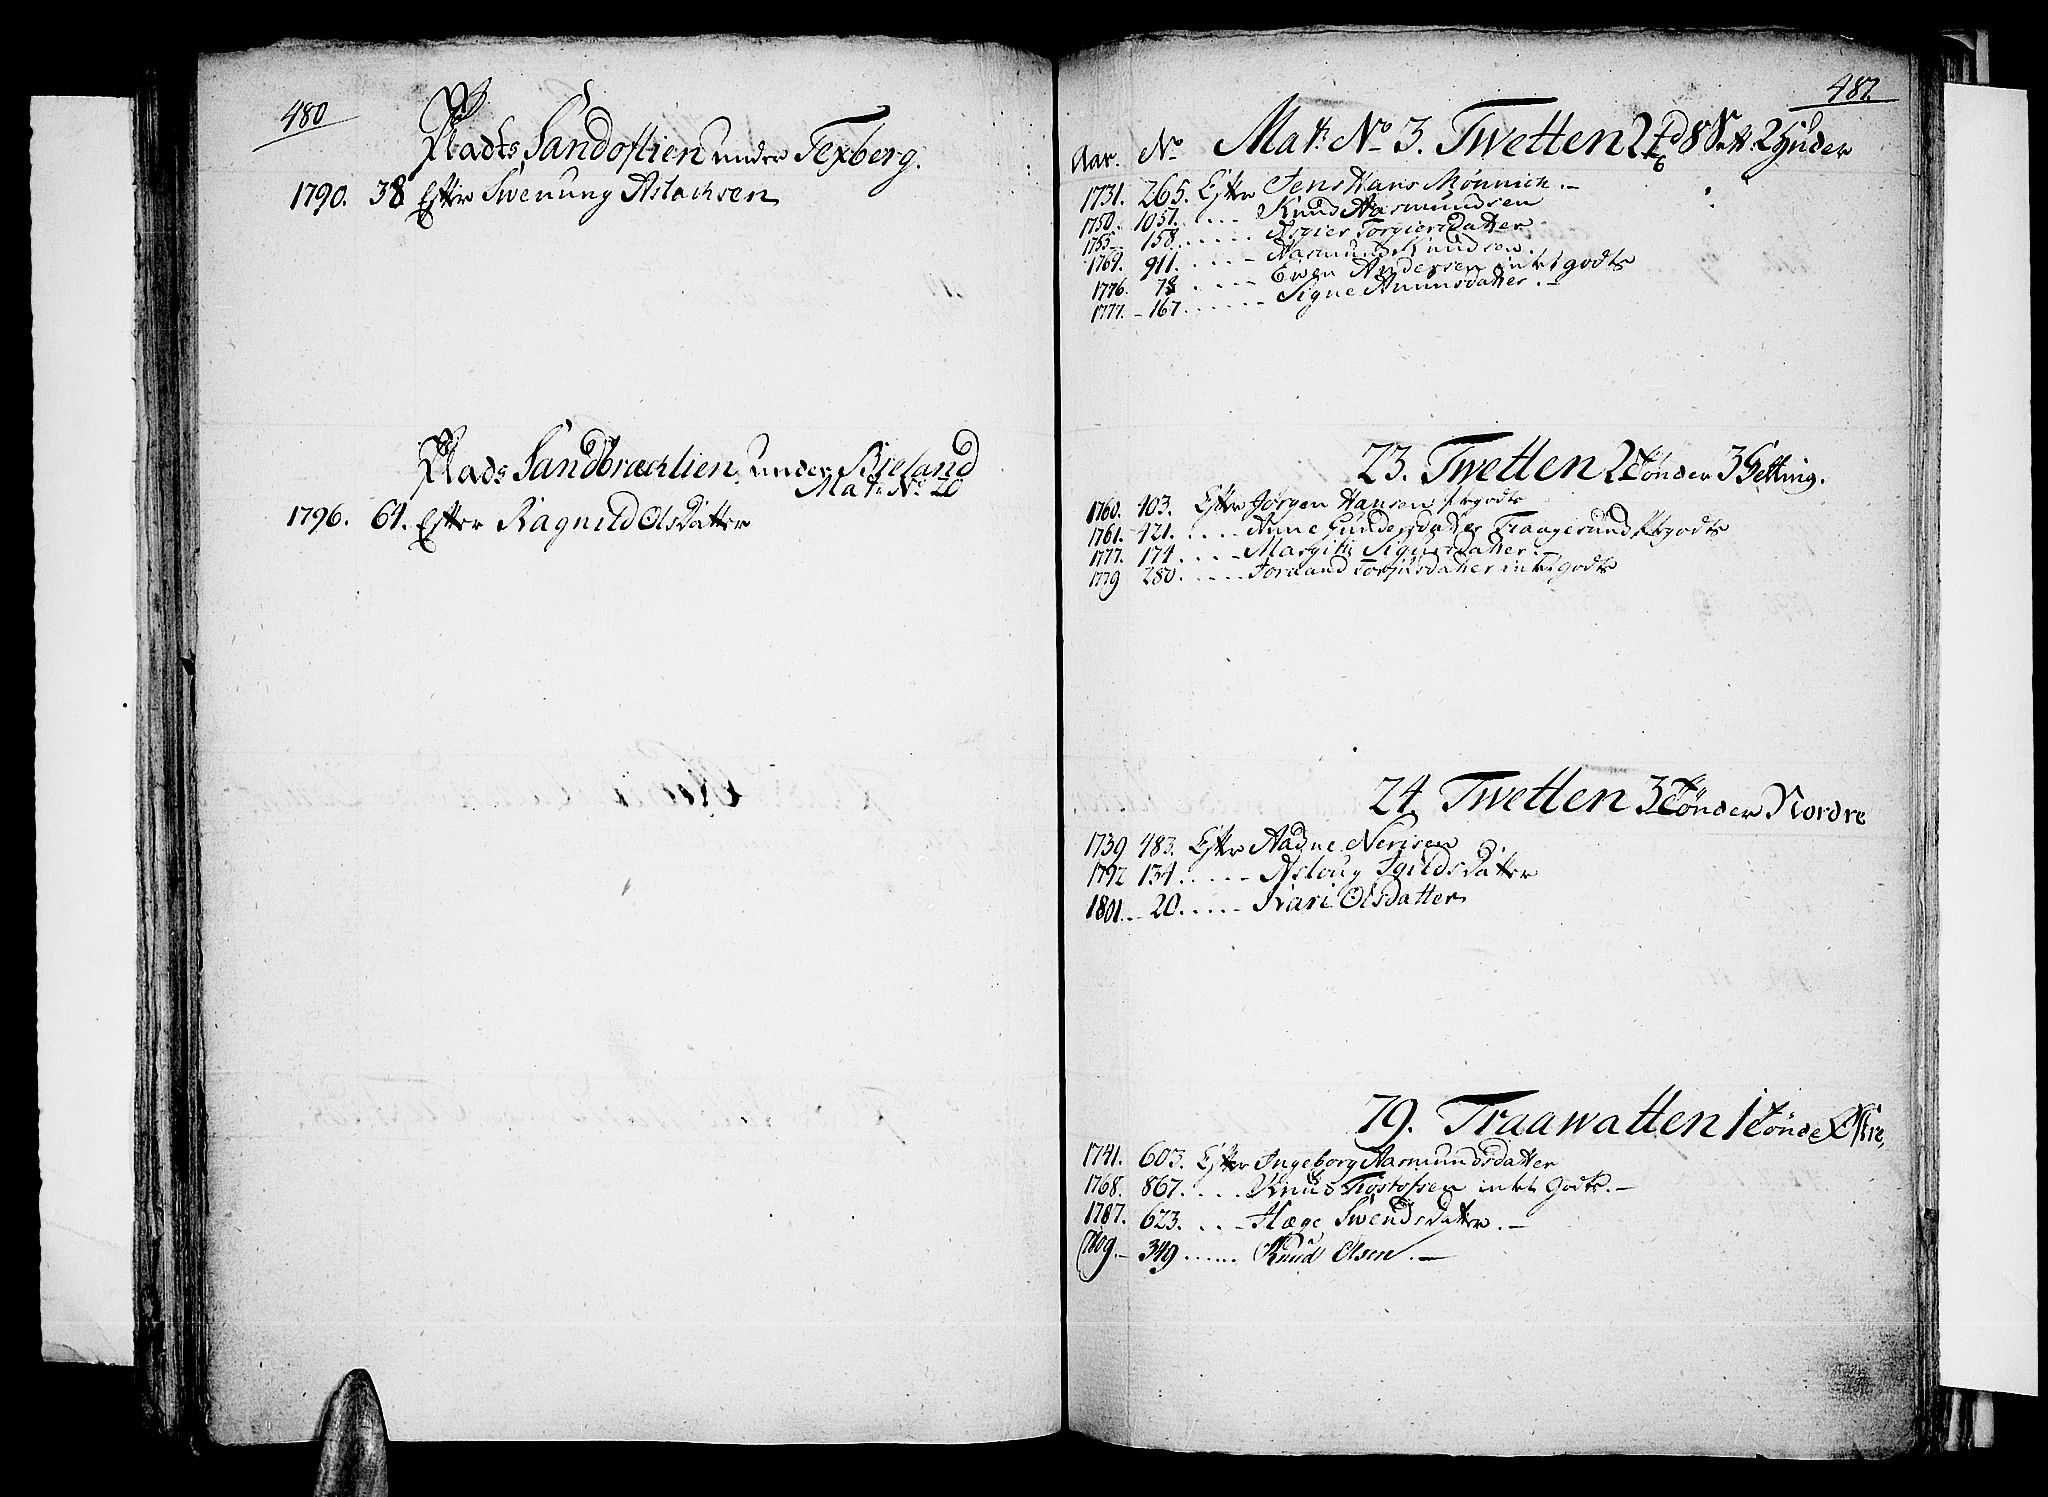 480
Pladts Sandoflien under Texberg.
1790. 38 Efter Swenung Aslachsen
Plads Sandbrachlien, under Bieland
Mat: No. 20
1796. 64. Efter Ragnild Olsdatter
487
Aar. No Mat: No 3. Twetten 2 Td 8 Sett. 2 Huder
1731. 265. Efter Jens Hans Mönnich. -
1750. 1051. .... Knud Aasmundsen
1755. 158. ...... Asgier Torgiersdatter
1769. 911. .... - Aasmund Knudsen.
1776. 78 .... - Ewen Andersen intet godts
1777. - 167. ...... - Signe Amunsdatter. -
23. Twetten 2 Tönder 3 Setting.
1760. 403. Efter Jörgen Hansen godts
1761. 421. .... Anne Gundersdatter Traagesund godts
1777. 174. .... - Margith Sigursdatter. -
1779 280. ..... - Joraand Torjusdatter intet godts
24. Twetten 3 Tönder Nordre
1739 483. Efter Aadne Nerisen
1792 134. ..... - Aslaug Igildsdatter
1801. - 20. ..... - Kari Olsdatter
79. Traawatten 1 Tönde Östre,
1741. 603. Efter Ingeborg Aasmundsdatter
1768. 867. .... Knud Tostofsen intet Godts. -
1787. 623. ... - Hæge Swendsdatter. -
1809. - 349 ...... Knud Olsen. -